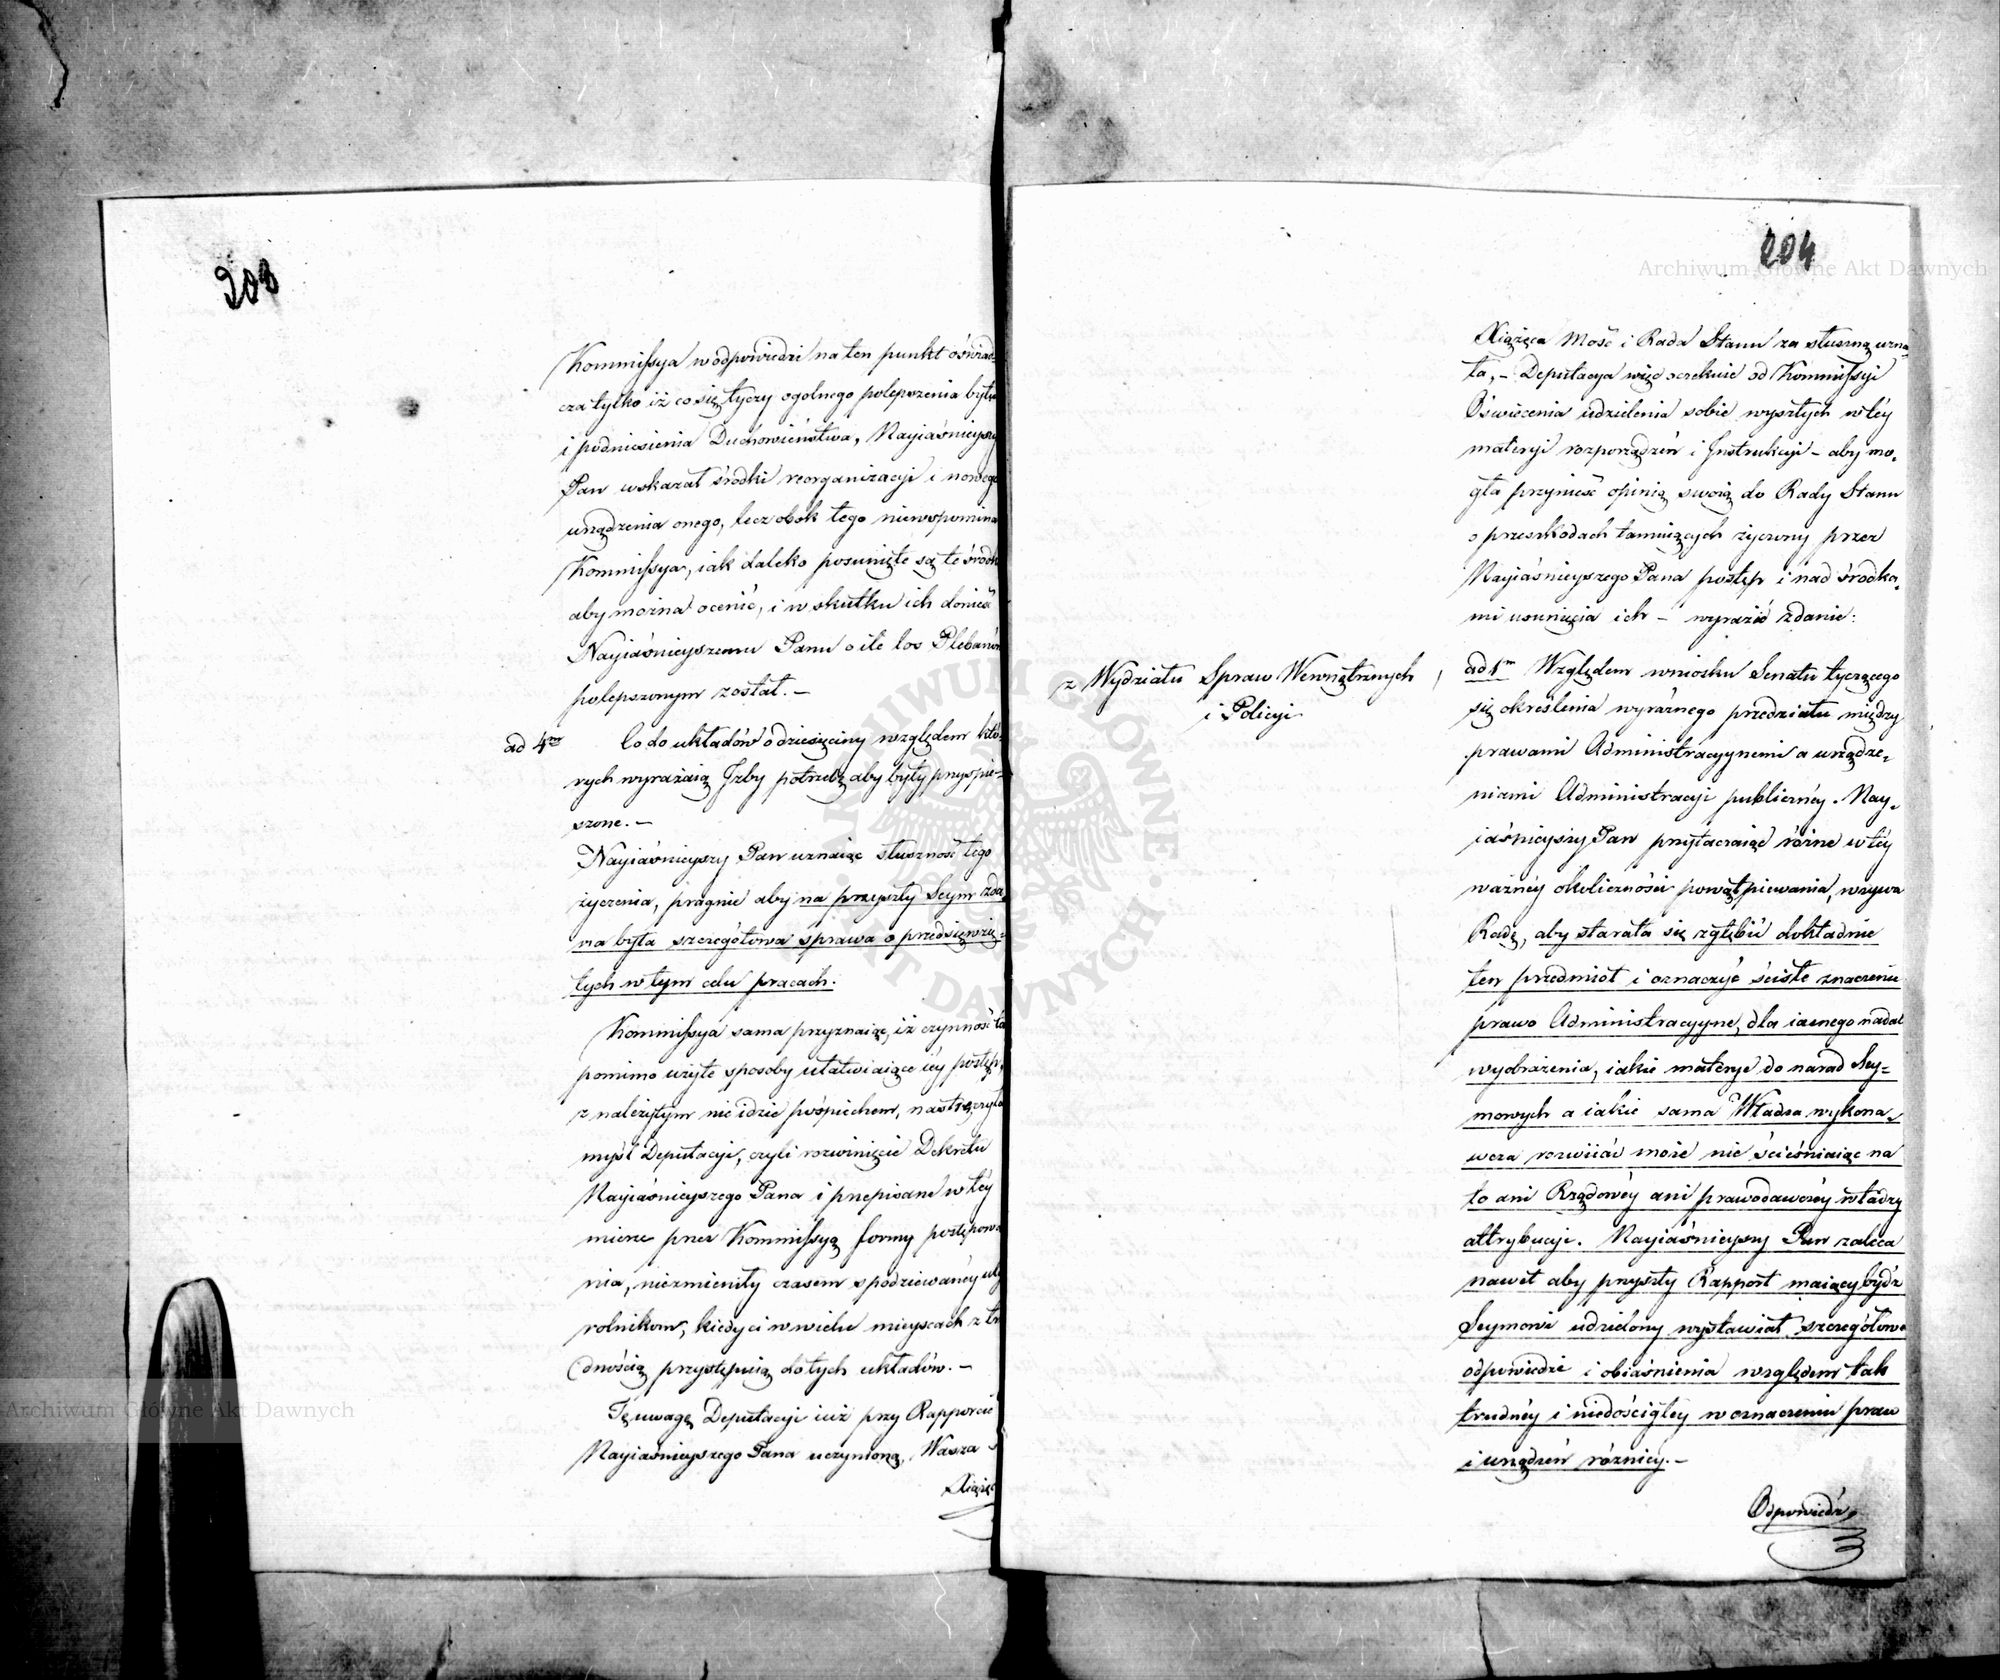 203
Kommissya w odpowiedzi na ten punkt oświad-
cza tylko iż co się tyczy ogolnego polepszenia bytu
i podniesienia Duchowieństwa, Nayiaśnieyszy
Pan wskazał środki reorganizacyi i nowego
urządzenia onego, lecz obok tego niewspomina
Kommissya, iak daleko posunięte są te środk
aby można ocenić, i w skutku ich donieść
Nayiaśnieyszemu Panu o ile los Plebanów
polepszonym został. —
ad 4to Co do układów o dziesięciny względem któ-
rych wyrażaią Izby potrzebę aby były przyspie-
szone. —
Nayiaśnieyszy Pan uznaiąc słuszność tego
życzenia, pragnie aby na przyszły Seym zda-
na była szczegółowa sprawa o przedsięwzię-
tych w tym celu pracach.
Kommissya sama przyznaie, iż czynność ta
pomimo użyte sposoby ułatwiaiące iéy postęp,
z należytym nie idzie pośpiechem, nastręczyła
myśl Deputacyi, czyli rozwinięcie Dekretu
Nayiaśnieyszego Pana i przepisane w téy
mierze przez Kommissyą formy postępowa
nia, niezmieniły czasem spodziewanéy ulg
rolnikom, kiedy ci w wielu mieyscach z tru
dnością przystępuią do tych układów. —
Tę uwagę Deputacyi iuż przy Rapporcie
Nayiaśnieyszego Pana uczynioną, Wasza
Xiążęc
204
Xiążęca Mość i Rada Stanu za słuszną uzna-
ła, – Deputacya więc oczekuie od Kommissyi
Oświecenia udzielenia sobie wyszłych w téy
materyi rozporządzeń i Instrukcyi – aby mo-
gła przynieść opinią swoią do Rady Stanu
o przeszkodach tamuiących życzony przez
Nayiaśnieyszego Pana postęp i nad środka-
mi usunięcia ich – wyrazić zdanie:
z Wydziału Spraw Wewnętrznych
i Policyi
ad 1m Względem wniosku Senatu tyczącego
się określenia wyraźnego przedziału między
prawami Administracyynemi a urządze-
niami Administracyi publicznéy. Nay-
iaśnieyszy Pan przytaczaiąc różne w téy
ważnéy okoliczności powątpiewania, wzywa
Radę, aby starała się zgłębić dokładnie
ten przedmiot i oznaczyć ściśle znaczenie
prawo Administracyyne, dla iasnego nadal
wyobrażenia, iakie materye do narad Sey-
mowych a iakie sama Władza wykona-
wcza rozwiiać może nie ścieśniaiąc na
to ani Rządowéy ani prawodawczéy władzy
attrybucyi. Nayiaśnieyszy Pan zaleca
nawet aby przyszły Rapport maiący bydź
Seymowi udzielony wystawiał szczegółowe
odpowiedzi i obiaśnienia względem tak
trudnéy i niedościgłey w oznaczeniu praw
i urządzeń różnicy. —
Odpowiedź,
Archiwum Główne Akt Dawnych
Archiwum Główne Akt Dawnych
ARCHIWUM GŁÓWNE AKT DAWNYCH